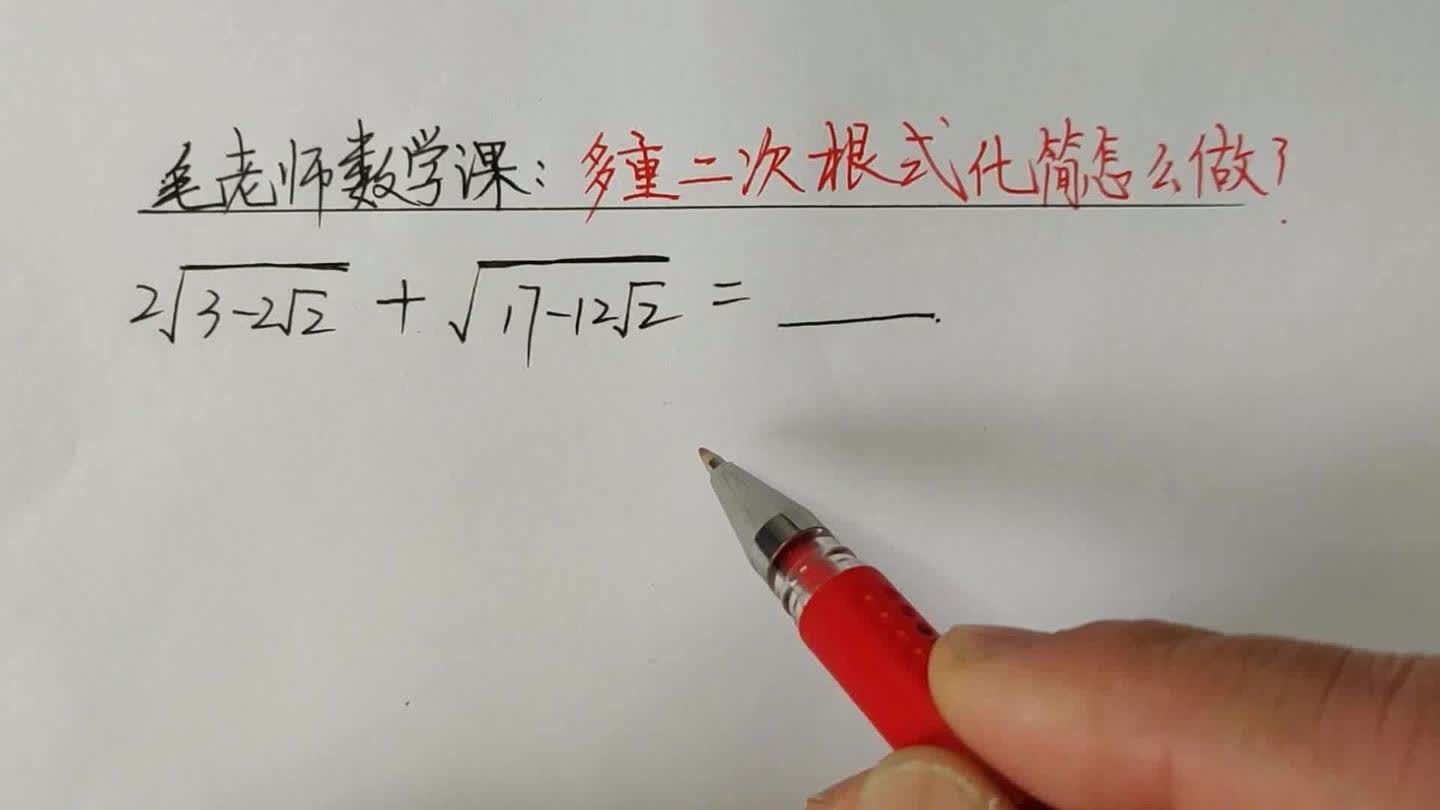 毛老师数学课:多重二次根式化简怎么做?
2√(3-2√2) + √(17-12√2) = ____.